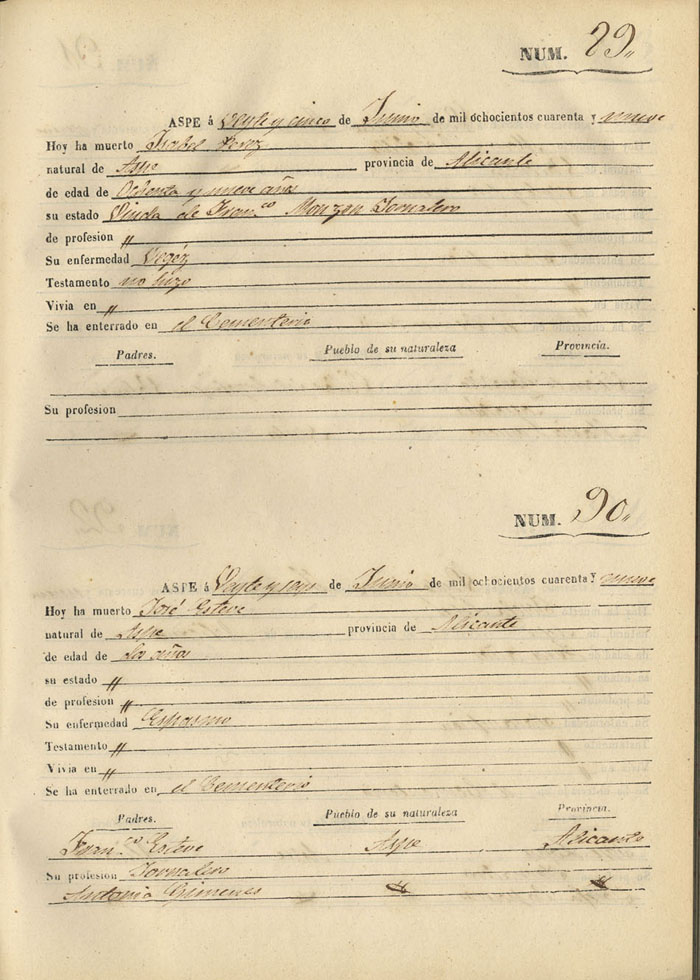 NUM. 89,,
ASPE á Veyte y cinco de Junio de mil ochocientos cuarenta y nueve
Hoy ha muerto Isabel Perez
natural de Aspe provincia de Alicante
de edad de Ochenta y nueve años
su estado Viuda de Fran.co Monzon Jornalero
de profesion "
Su enfermedad Vegéz
Testamento no hizo
Vivia en "
Se ha enterrado en el Cementerio
Padres. Pueblo de su naturaleza Provincia.
Su profesion
NUM. 90,,
ASPE á Veyte y seys de Junio de mil ochocientos cuarenta y nueve
Hoy ha muerto José Esteve
natural de Aspe provincia de Alicante
de edad de dos años
su estado "
de profesion "
Su enfermedad Espasmo
Testamento "
Vivia en "
Se ha enterrado en el Cementerio
Padres. Pueblo de su naturaleza Provincia.
Fran.co Esteve Aspe Alicante
Su profesion Jornalero
Antonia Gimenes